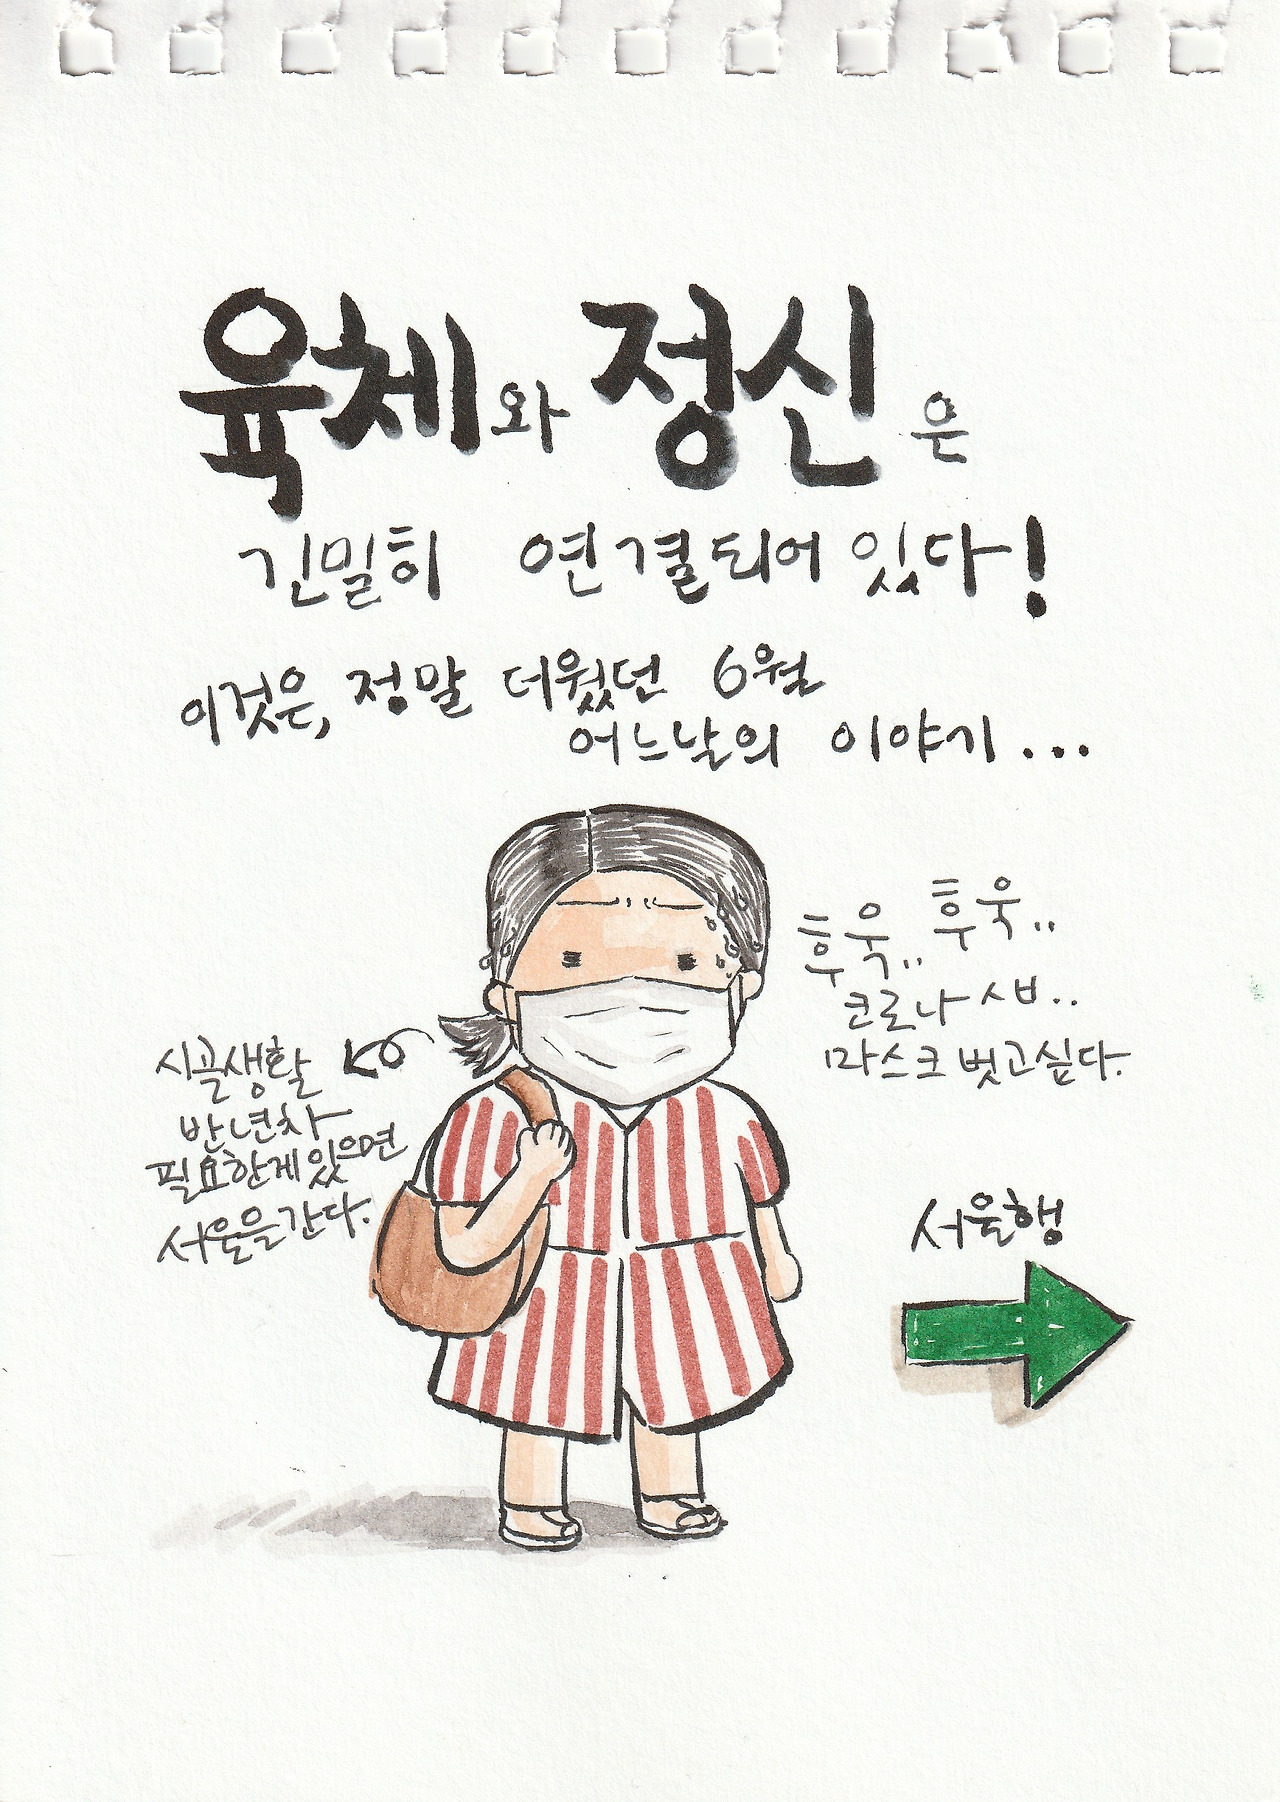 육체와 정신은
긴밀히 연결되어 있다!
이것은, 정말 더웠던 6월
어느날의 이야기...
후욱.. 후욱..
코로나 ㅅㅂ..
마스크 벗고싶다.
시골생활
반년차
필요한게있으면
서울을간다.
서울행